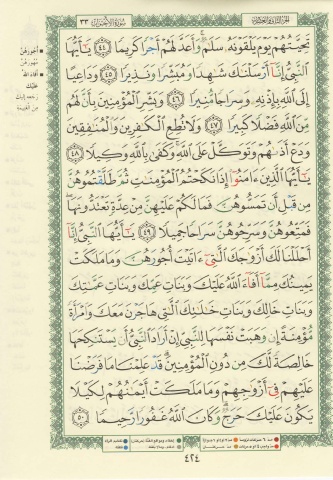 الجزء الثاني والعشرون
سورة الأحزاب ٣٣
تَحِيَّتُهُمْ يَوْمَ يَلْقَوْنَهُۥ سَلَٰمٌ وَأَعَدَّ لَهُمْ أَجْرًا كَرِيمًا ٤٤ يَٰٓأَيُّهَا
ٱلنَّبِىُّ إِنَّآ أَرْسَلْنَٰكَ شَٰهِدًا وَمُبَشِّرًا وَنَذِيرًا ٤٥ وَدَاعِيًا
إِلَى ٱللَّهِ بِإِذْنِهِۦ وَسِرَاجًا مُّنِيرًا ٤٦ وَبَشِّرِ ٱلْمُؤْمِنِينَ بِأَنَّ لَهُم
مِّنَ ٱللَّهِ فَضْلًا كَبِيرًا ٤٧ وَلَا تُطِعِ ٱلْكَٰفِرِينَ وَٱلْمُنَٰفِقِينَ
وَدَعْ أَذَىٰهُمْ وَتَوَكَّلْ عَلَى ٱللَّهِ وَكَفَىٰ بِٱللَّهِ وَكِيلًا ٤٨
يَٰٓأَيُّهَا ٱلَّذِينَ ءَامَنُوٓا۟ إِذَا نَكَحْتُمُ ٱلْمُؤْمِنَٰتِ ثُمَّ طَلَّقْتُمُوهُنَّ
مِن قَبْلِ أَن تَمَسُّوهُنَّ فَمَا لَكُمْ عَلَيْهِنَّ مِنْ عِدَّةٍ تَعْتَدُّونَهَا
فَمَتِّعُوهُنَّ وَسَرِّحُوهُنَّ سَرَاحًا جَمِيلًا ٤٩ يَٰٓأَيُّهَا ٱلنَّبِىُّ إِنَّآ
أَحْلَلْنَا لَكَ أَزْوَٰجَكَ ٱلَّٰتِىٓ ءَاتَيْتَ أُجُورَهُنَّ وَمَا مَلَكَتْ
يَمِينُكَ مِمَّآ أَفَآءَ ٱللَّهُ عَلَيْكَ وَبَنَاتِ عَمِّكَ وَبَنَاتِ عَمَّٰتِكَ
وَبَنَاتِ خَالِكَ وَبَنَاتِ خَٰلَٰتِكَ ٱلَّٰتِى هَاجَرْنَ مَعَكَ وَٱمْرَأَةً
مُّؤْمِنَةً إِن وَهَبَتْ نَفْسَهَا لِلنَّبِىِّ إِنْ أَرَادَ ٱلنَّبِىُّ أَن يَسْتَنكِحَهَا
خَالِصَةً لَّكَ مِن دُونِ ٱلْمُؤْمِنِينَ قَدْ عَلِمْنَا مَا فَرَضْنَا
عَلَيْهِمْ فِىٓ أَزْوَٰجِهِمْ وَمَا مَلَكَتْ أَيْمَٰنُهُمْ لِكَيْلَا
يَكُونَ عَلَيْكَ حَرَجٌ وَكَانَ ٱللَّهُ غَفُورًا رَّحِيمًا ٥٠
٤٢٤
أجورهن
مهورهن
أفاء الله
عليك
رجعه إليك
من الغنيمة